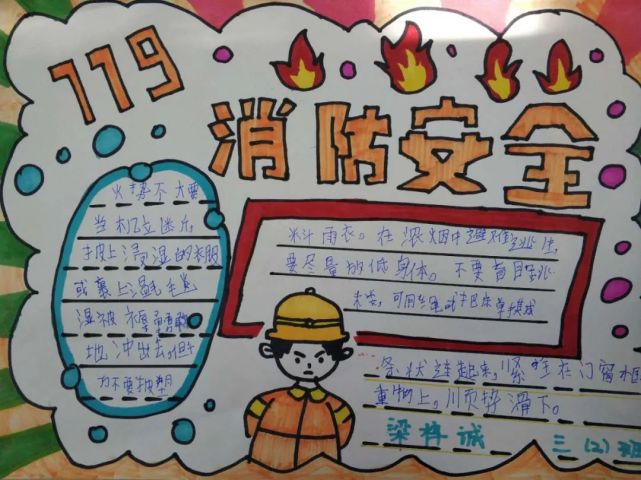 119
消防安全
火势不大要
当机立断，
披上浸湿的衣服
或裹上湿毛毯
湿被褥勇敢
地冲出去，但千
万不要披塑
料雨衣。在浓烟中避难逃生，
要尽量的低身体。不要盲目跳
条状连起来，紧拴在门窗框
重物上。顺势滑下。
梁梓诚
三（2）班